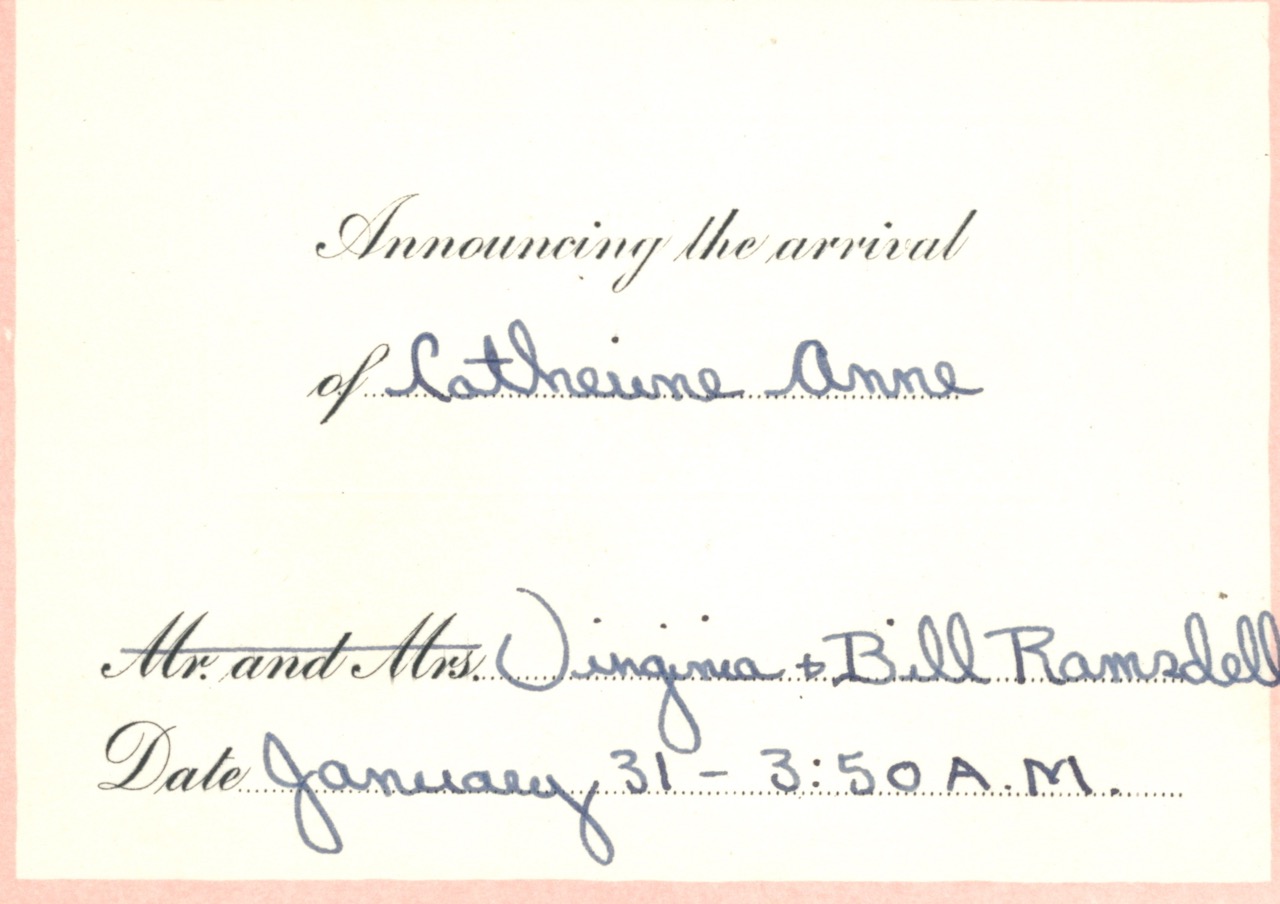 Announcing the arrival
of Catherine Anne
Mr. and Mrs. Virginia + Bill Ramsdell
Date January 31 - 3:50 A.M.